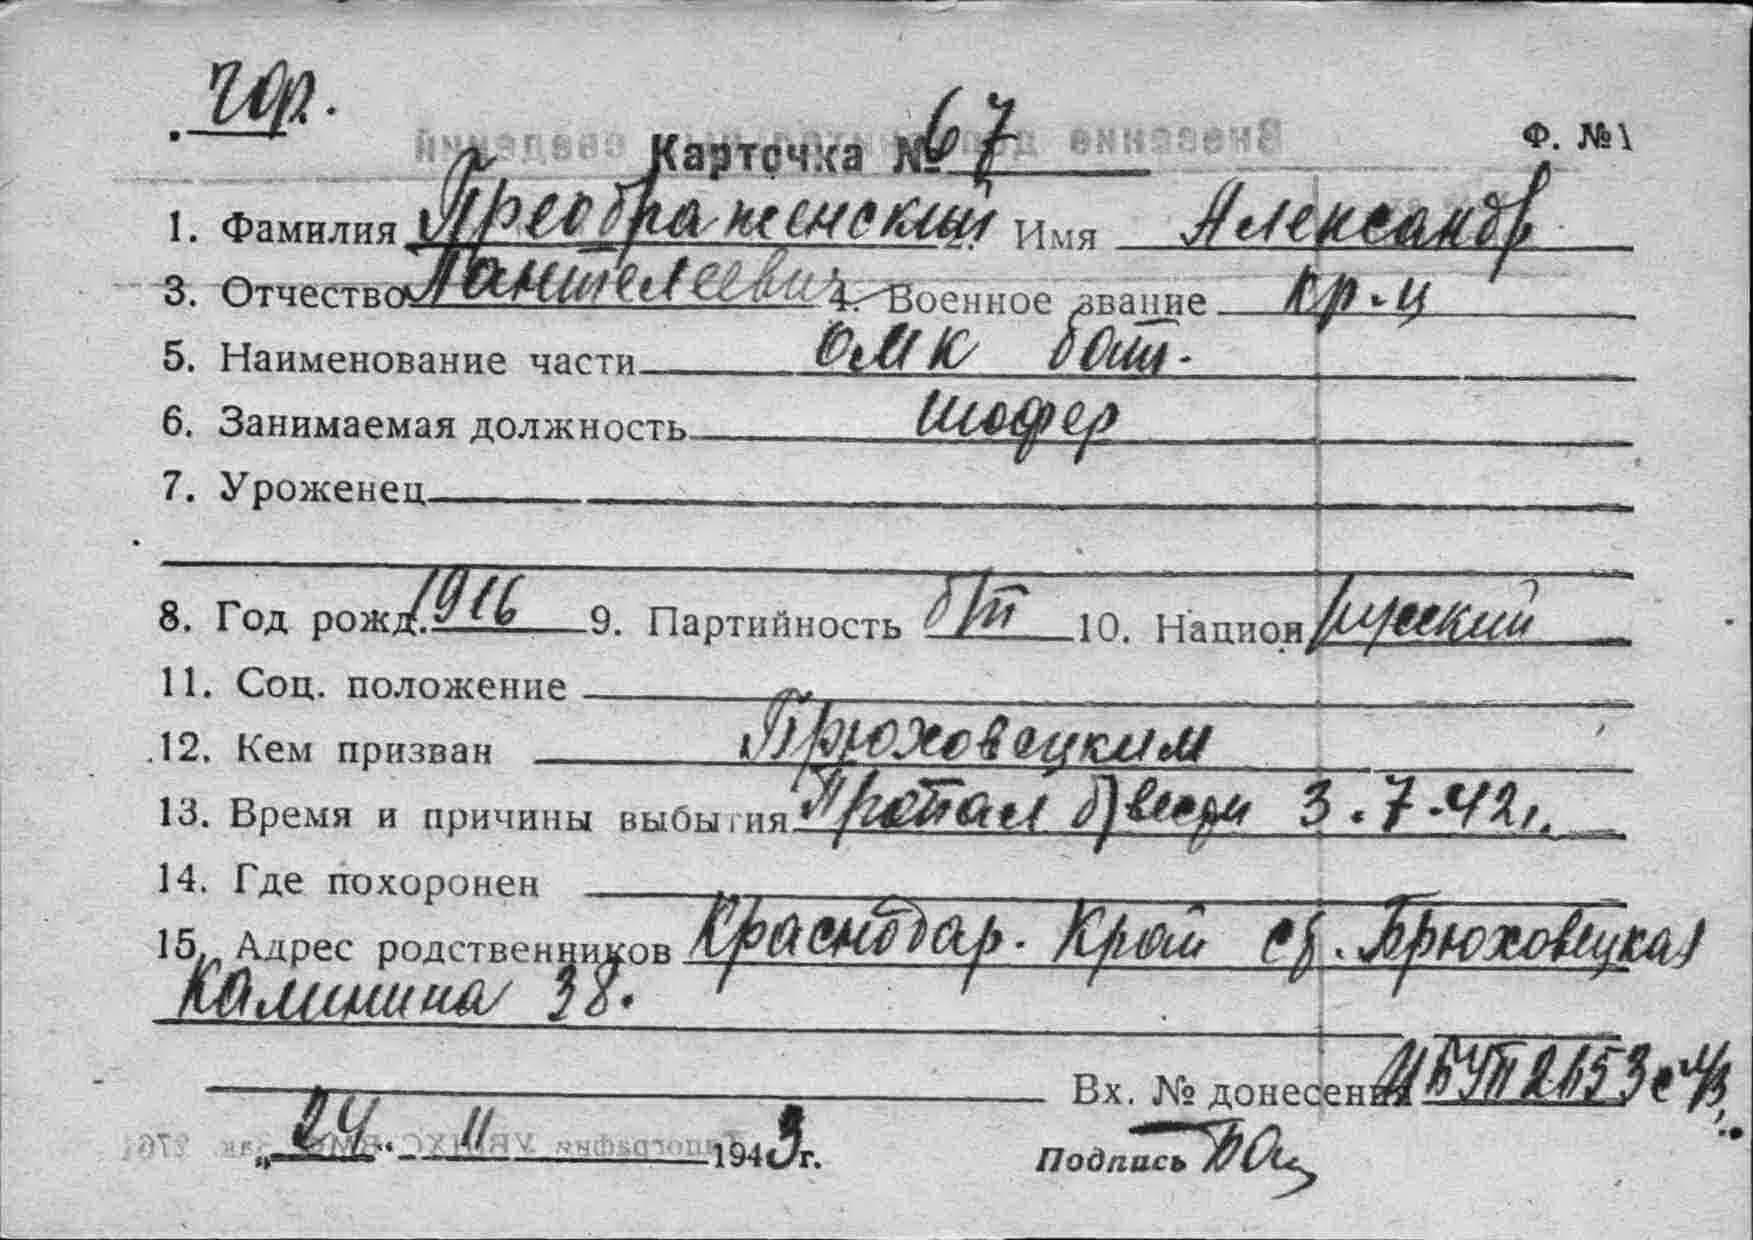 чор.
Карточка № 67
Ф. №1
1. Фамилия Преображенский Имя Александр
3. Отчество Пантелеевич 4. Военное звание кр-ц
5. Наименование части ОМК бат.
6. Занимаемая должность шофер
7. Уроженец
8. Год рожд. 1916 9. Партийность б/п 10. Национ русский
11. Соц. положение
12. Кем призван Брюховецким
13. Время и причины выбытия Пропал б/вести 3.7.42г.
14. Где похоронен
15. Адрес родственников Краснодар. Край ст. Брюховецкая
Калинина 38.
Вх. № донесения
„24“ 11 1943г.
Подпись